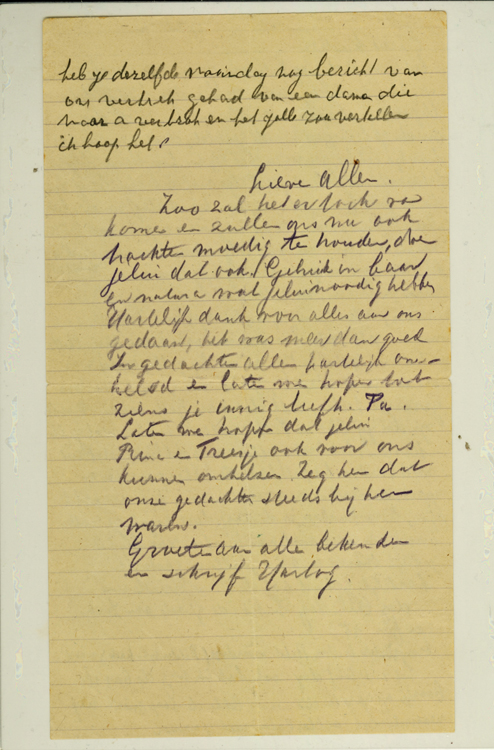 heb je dezelfde maandag nog bericht van
ons vertrek gehad van een dame die
naar a vertrok en het zelf zou vertellen
ik hoop het?
Lieve Allen.
Zoo zal het er toch van
komen en zullen ons nu ook
trachten moedig te houden, doe
jelui dat ook. Gebruik in baar
en natura wat jelui noodig hebben
Hartelijk dank voor alles aan ons
gedaan, het was meer dan goed
In gedachten allen hartelijk
en laten we hopen tot
ziens je innig liefh. Pa.
Laten we hopen dat jelui
en Treesje ook voor ons
kunnen omhelzen. Zeg hen dat
onze gedachten steeds bij hen
waren.
Groeten aan alle bekenden
en schrijf Hartog.